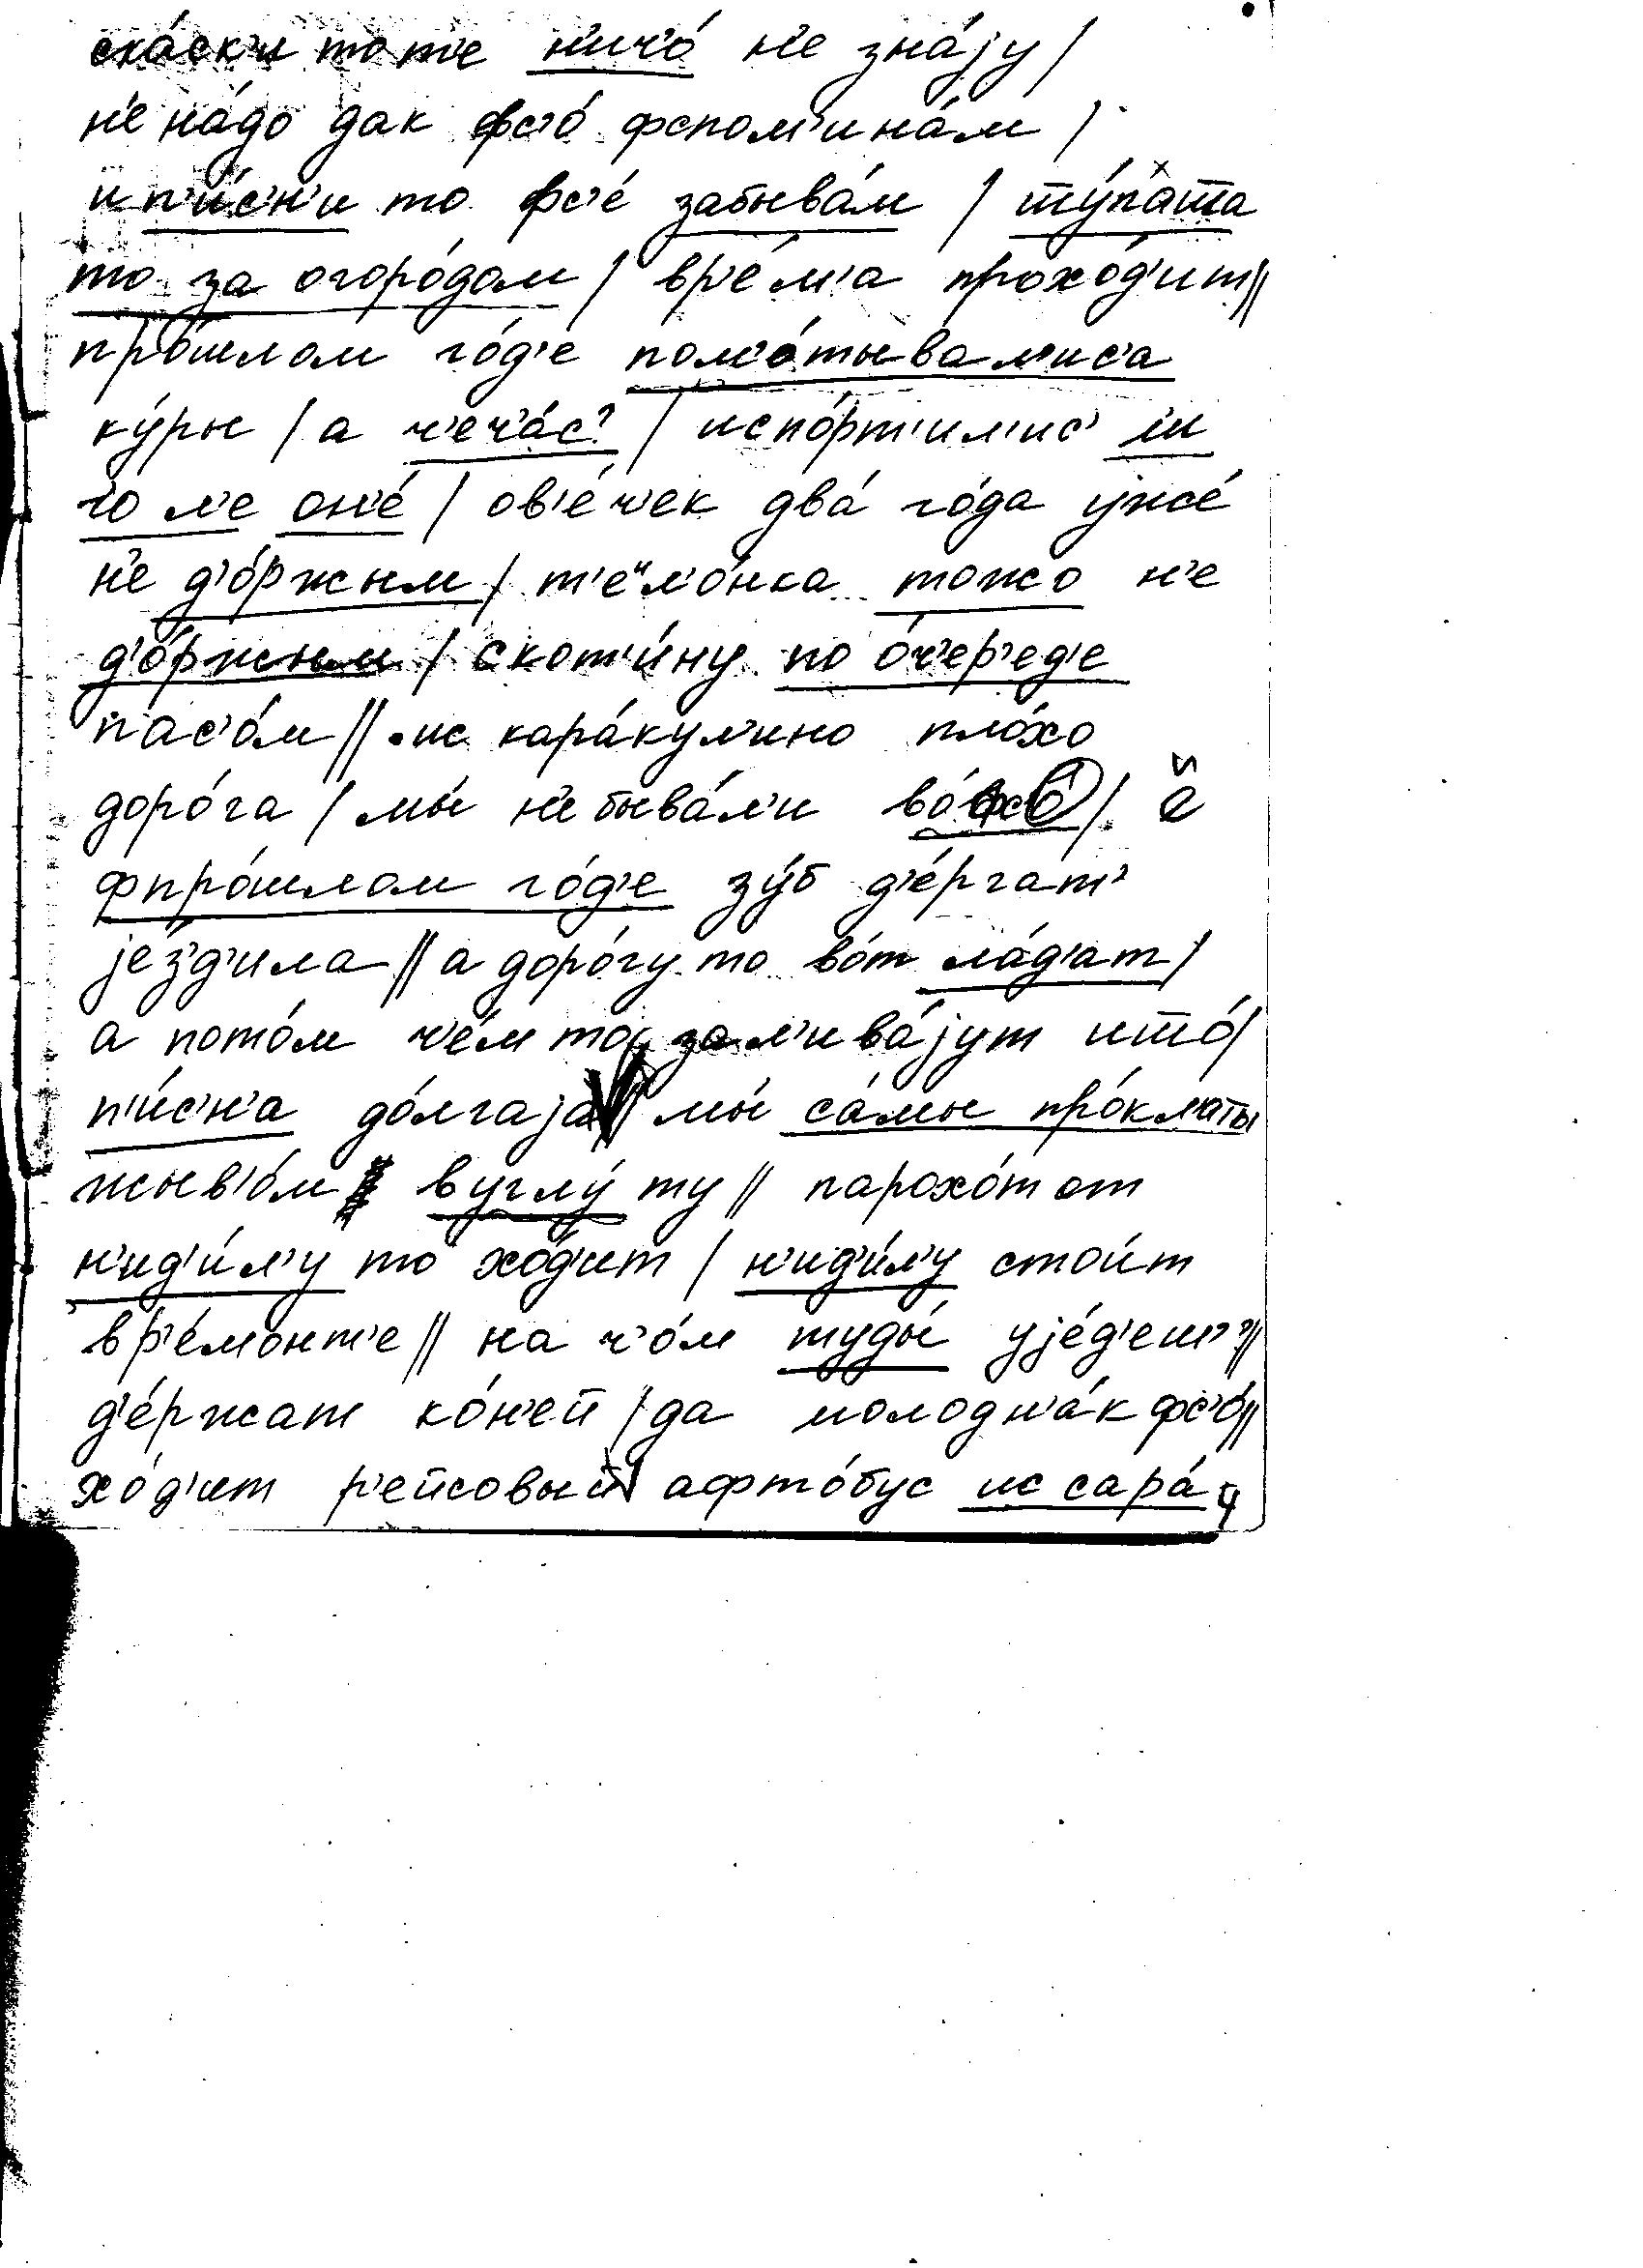 ска́ск'и то т'е н'ич'о́ н'е зна́jу /
н'е на́до дак фс'о́ фспом'ина́м /
и п'и́с'н'и то фс'е́ забыва́м / ту́п'ата
то за огоро́дом / вр'е́м'а прохо́д'ит //
про́шлом го́д'е пом'о́тывал'ис'а
ку́ры / а ч'еча́с? / испо́рт'ил'ис' ли
го л'е он'е́ / ов'е́ч'ек два́ го́да уже́
н'е д'о́ржым / т'ел'о́нка тожо н'е
д'о́ржым / скот'и́ну по о́ч'ер'ед'е
пас'о́м // ис кара́кул'ино пло́хо
доро́га / мы́ н'е быва́л'и / й
фпро́шлом го́д'е зу́б д'е́ргат'
jе́з'д'ила // а доро́гу то во́т ла́д'ат /
а пото́м ч'е́м то зал'ива́jут што́ /
п'и́с'н'а до́лгаjа // мы́ са́мы про́кл'аты
жыв'о́м в углу́ ту // парохо́т от
н'ид'и́л'у то хо́д'ит / н'ид'и́л'у стои́т
вр'е́монт'е // на ч'о́м туды́ уjе́д'еш'? //
д'е́ржат ко́н'ей / да молодн'а́к фс'о́ //
хо́д'ит р'ейсовый афто́бус ис сара́